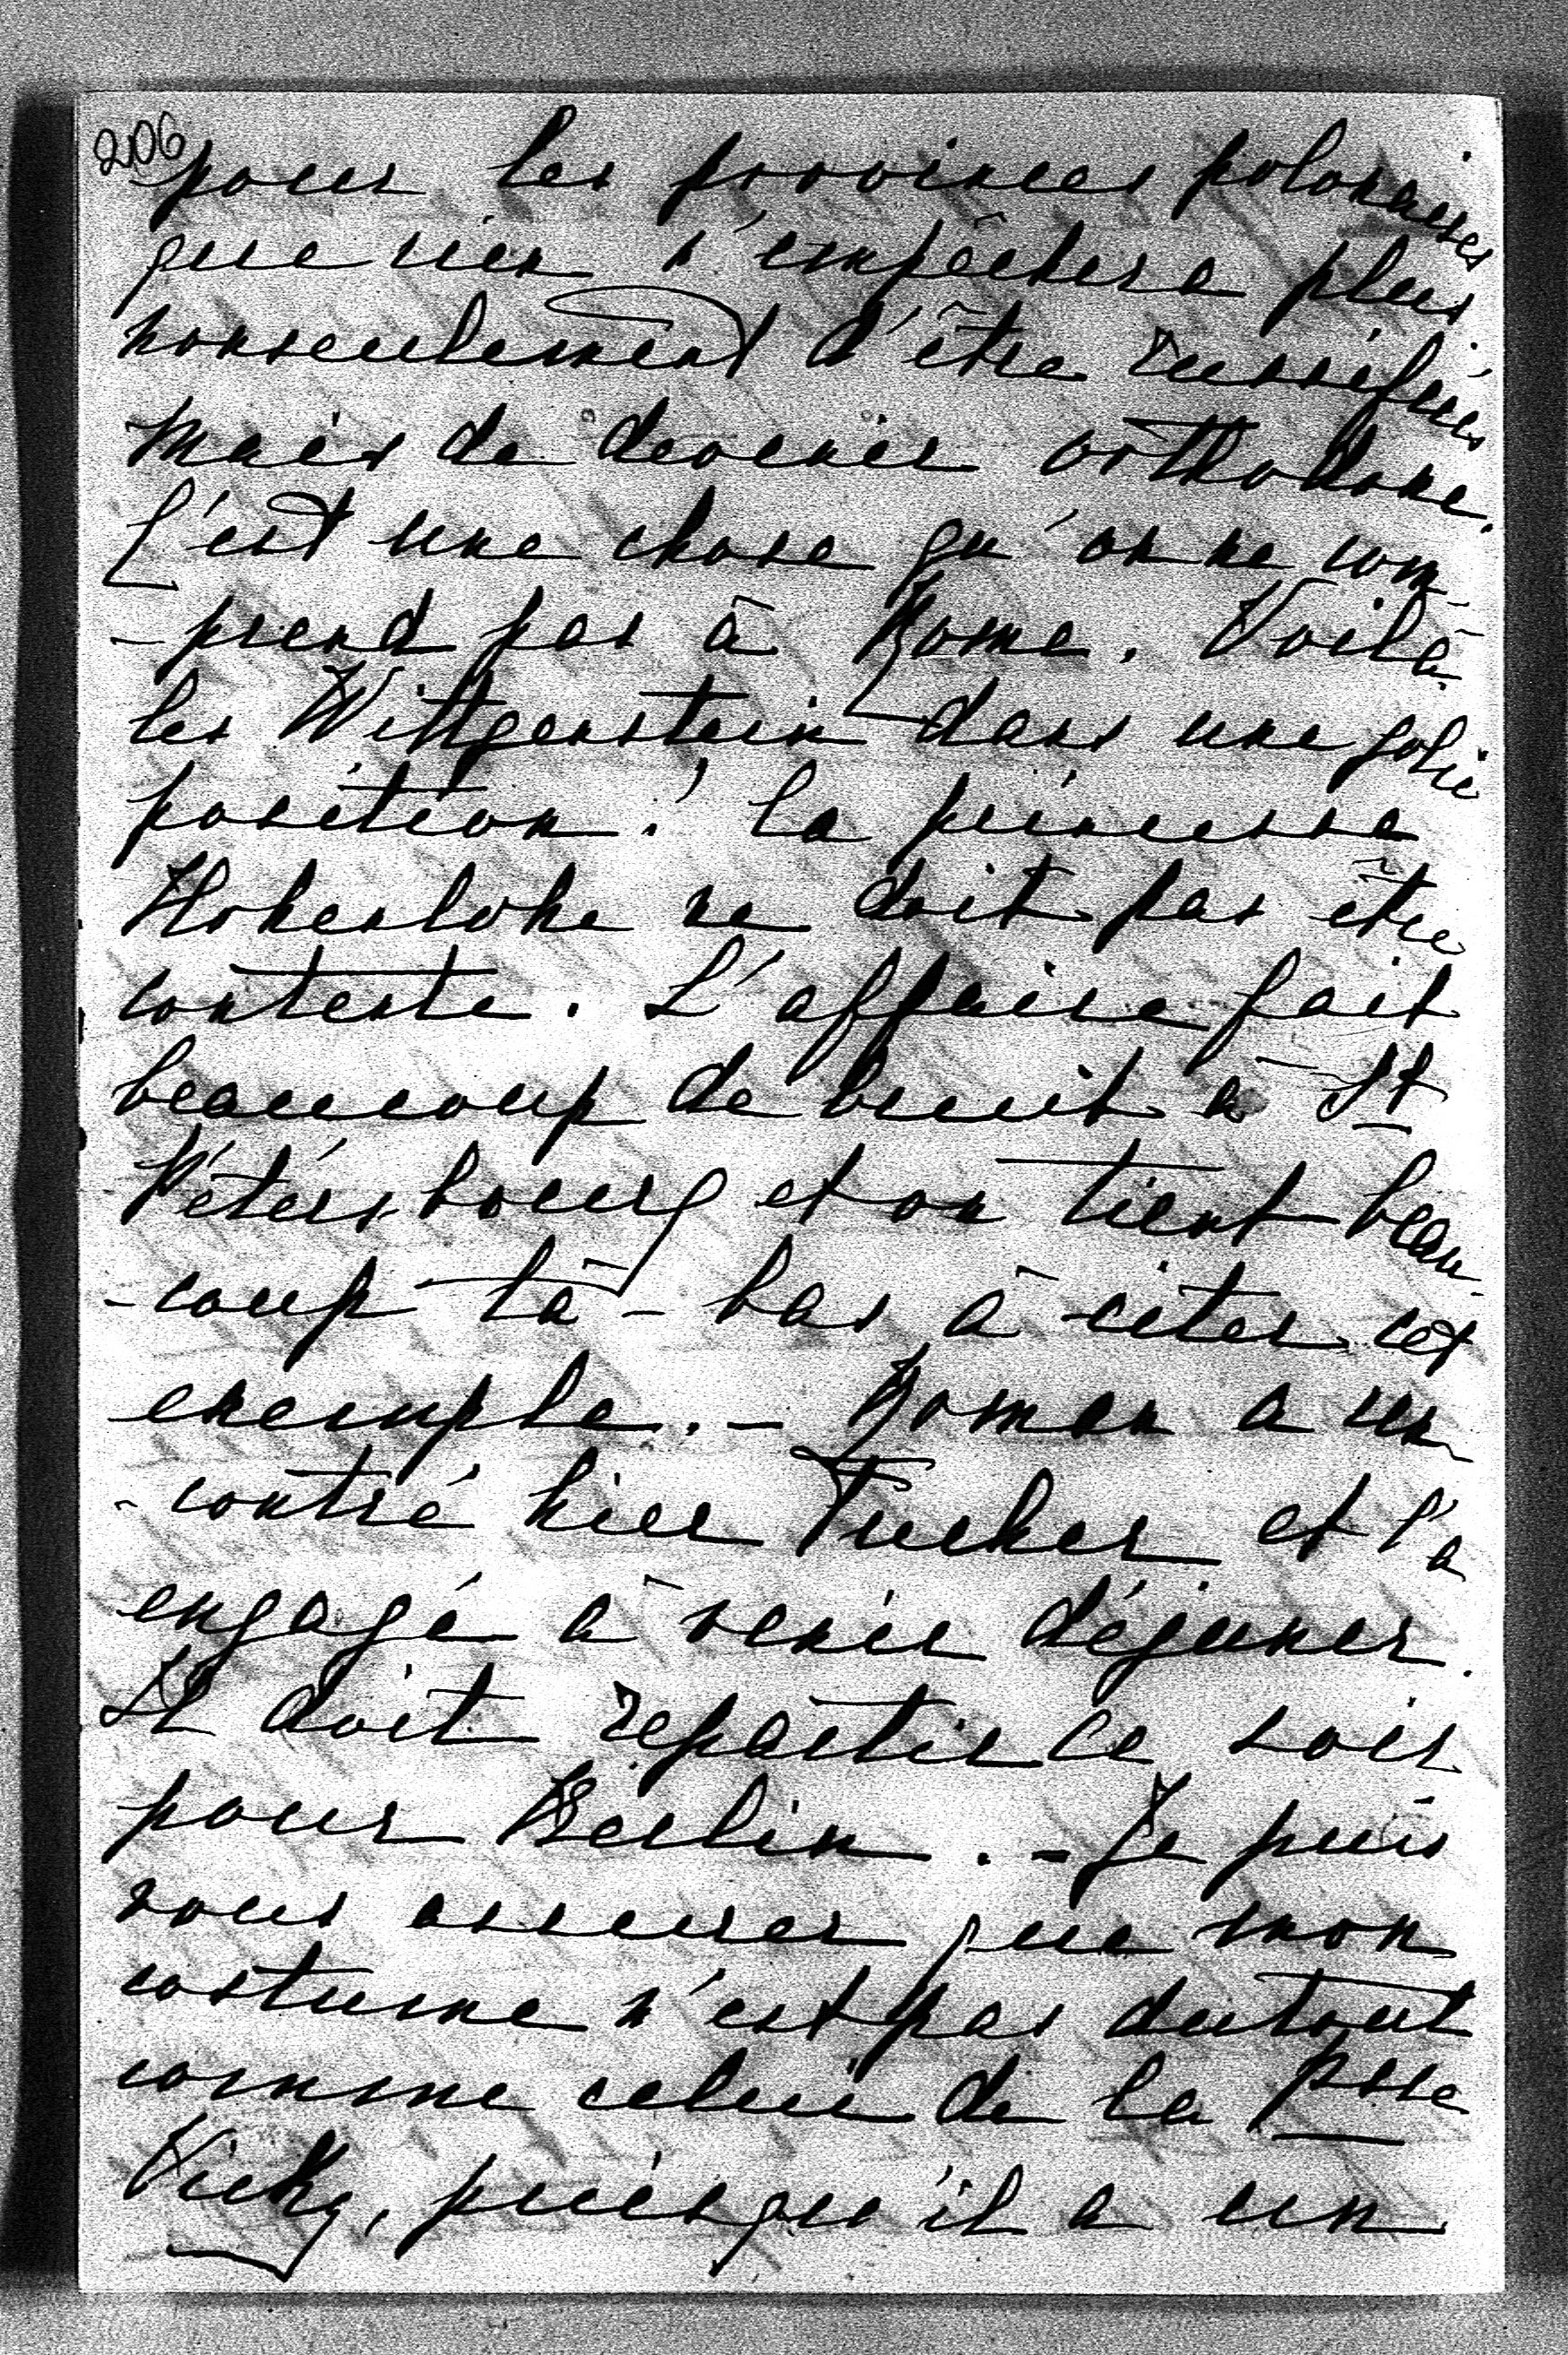 206
pour les provinces polonaises
que rien n'empêchera plus
nonseulement d'être russifiées
mais de devenir orthodoxe.
C'est une chose qu'on ne com-
-prend pas à Rome. Voilà
les Wittgenstein dans une jolie
position! La princesse
Hohenlohe ne doit pas être
contente. L'affaire fait
beaucoup de bruit à St
Pétersbourg et on tient beau-
-coup là-bas à citer cet
exemple. - Roman a ren-
-contré hier Tucher et l'a
engagé à venir déjeuner.
Il doit repartir ce soir
pour Berlin. - Je puis
vous assurer que mon
costume n'est pas dutout
comme celui de la Psse
Vicky, puisqu'il a un